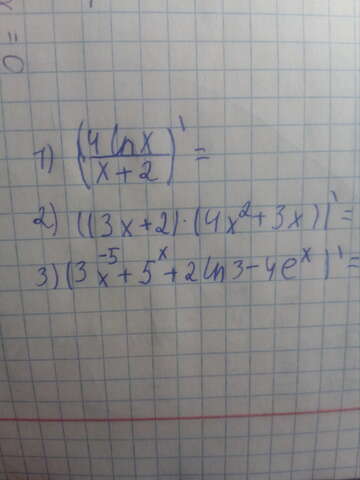 1) (4 ln x / x + 2)' =
2) ((3x + 2) · (4x² + 3x))' =
3) (3x⁻⁵ + 5ˣ + 2 ln 3 - 4eˣ)' =